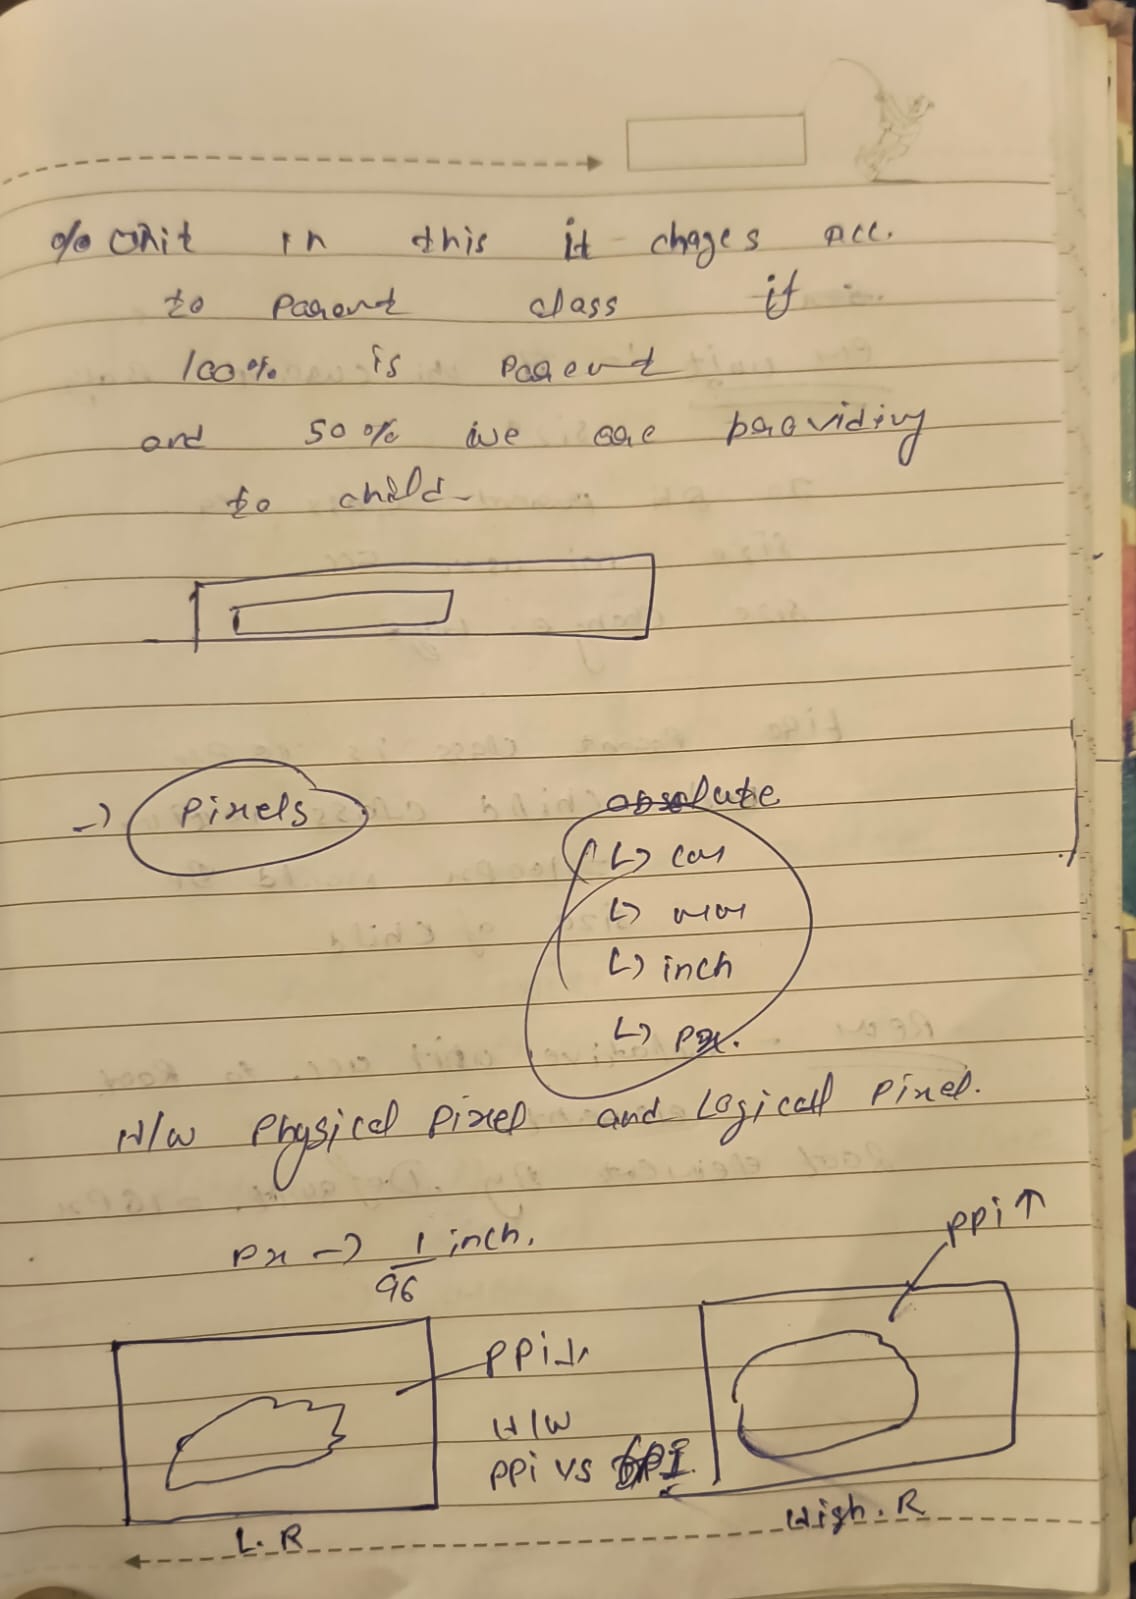 % unit in this it chages acc.
to parent class if
100% is parent
and 50% we are providing
to child.
→ Pixels
absolute
↳ cm
↳ mm
↳ inch
↳ px.
H/W Physical Pixel and Logicall Pixel.
px → 1/96 inch.
PPi↑
PPi↓
H/W
PPi vs DPI.
L.R
High.R